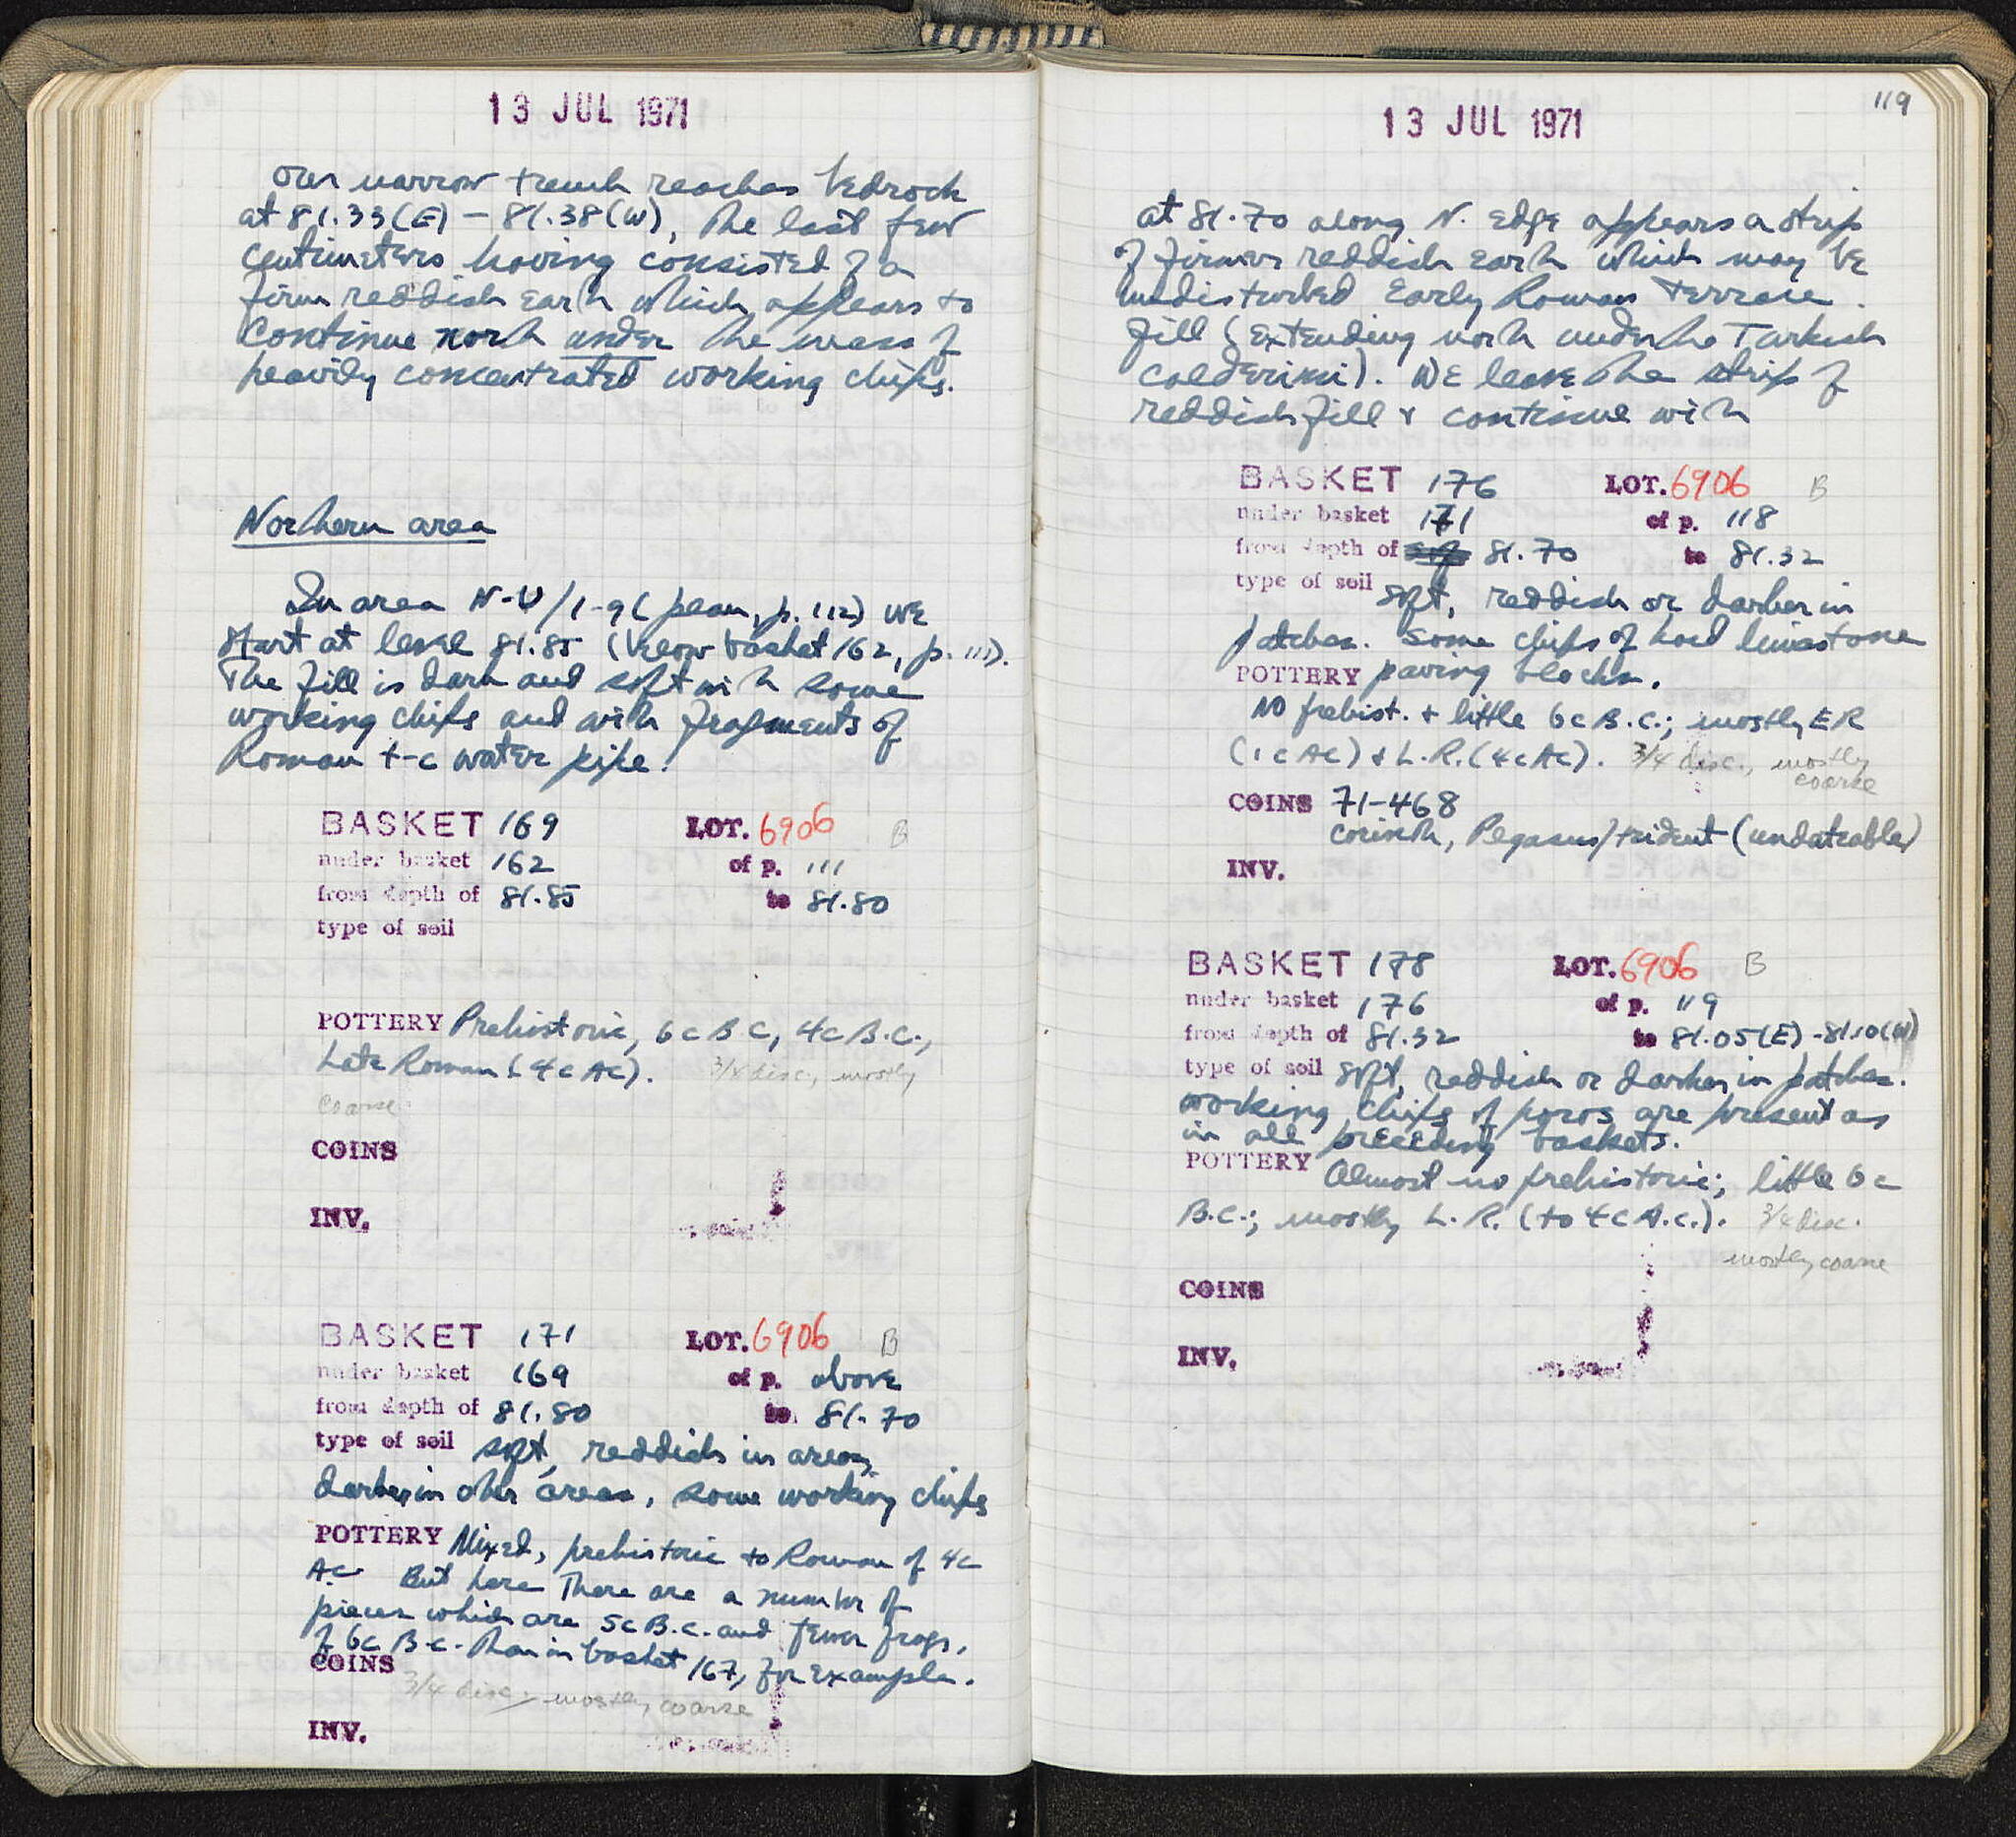 13 JUL 1971
Our narrow trench reaches bedrock
at 81.33(E) – 81.38(W), the last few
centimeters having consisted of a
firm reddish earth which appears to
continue north under the mass of
heavily concentrated working chips.
Northern area
In area N-U/1-9 (plan, p. 112) we
start at level 81.85 (below basket 162, p. 111).
The fill is dark and soft with some
working chips and with fragments of
Roman t-c water pipe.
BASKET 169 LOT. 6906 B
under basket 162 of p. 111
from depth of 81.85 to 81.80
type of soil
POTTERY Prehistoric, 6c B.C, 4c B.C.,
Late Roman (4c AC). 3/4 disc., mostly
coarse
COINS
INV.
BASKET 171 LOT. 6906 B
under basket 169 of p. above
from depth of 81.80 to 81.70
type of soil soft, reddish in areas,
darker in other areas, some working chips
POTTERY Mixed, prehistoric to Roman of 4c
AC. But here there are a number of
pieces which are 5c B.C. and fewer frags.
of 6c B.C. than in basket 167, for example.
COINS
3/4 disc., mostly coarse
INV.
119
13 JUL 1971
at 81.70 along N. edge appears a strip
of firmer reddish earth which may be
undisturbed Early Roman terrace
fill (extending north under the Turkish
calderimi). We leave the strip of
reddish fill & continue with
BASKET 176 LOT. 6906 B
under basket 171 of p. 118
from depth of 81.70 to 81.32
type of soil soft, reddish or darker in
patches. Some chips of hard limestone
POTTERY paving blocks.
No prehist. + little 6c B.C.; mostly ER
(1c AC) & L.R. (4c AC). 3/4 disc., mostly
coarse
COINS 71-468
Corinth, Pegasus/trident (undateable)
INV.
BASKET 178 LOT. 6906 B
under basket 176 of p. 119
from depth of 81.32 to 81.05(E) - 81.10(W)
type of soil soft, reddish or darker, in patches.
working chips of poros are present as
in all preceeding baskets.
POTTERY Almost no prehistoric; little 6c
B.C.; mostly L.R. (to 4c A.C.). 3/4 disc.
mostly coarse
COINS
INV.